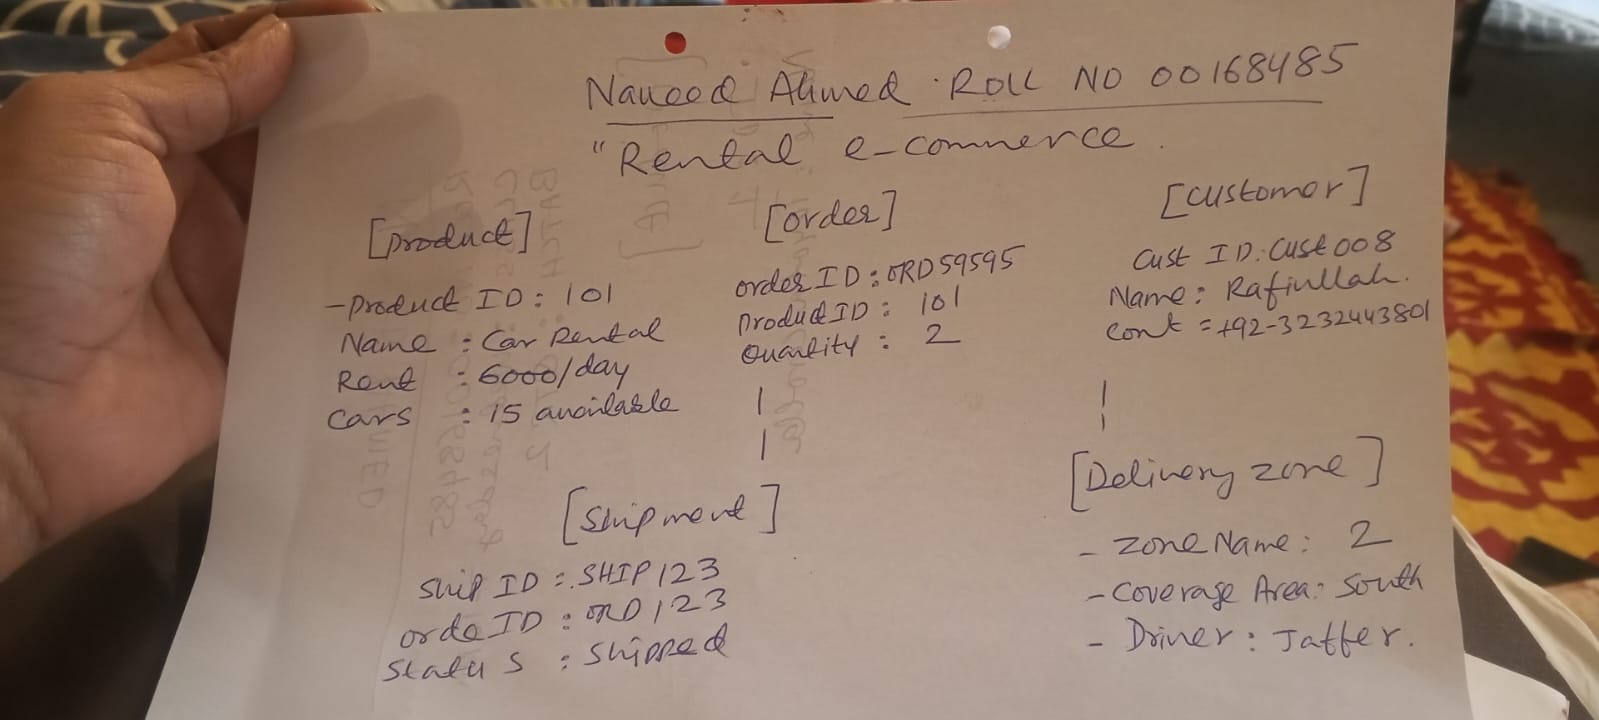 Naveed Ahmed · Roll NO 00168485
"Rental e-commerce.
[product]
- Product ID: 101
Name : Car Rental
Rent : 6000/day
Cars : 15 available
[order]
order ID : ORD59595
Product ID : 101
Quantity : 2
[customer]
Cust ID: Cust008
Name: Rafiullah.
Cont = +92-3232443801
[Shipment]
Ship ID : SHIP123
orde ID : ORD123
Status : Shipped
[Delivery zone]
- Zone Name : 2
- Coverage Area: South
- Driver : Jaffer.